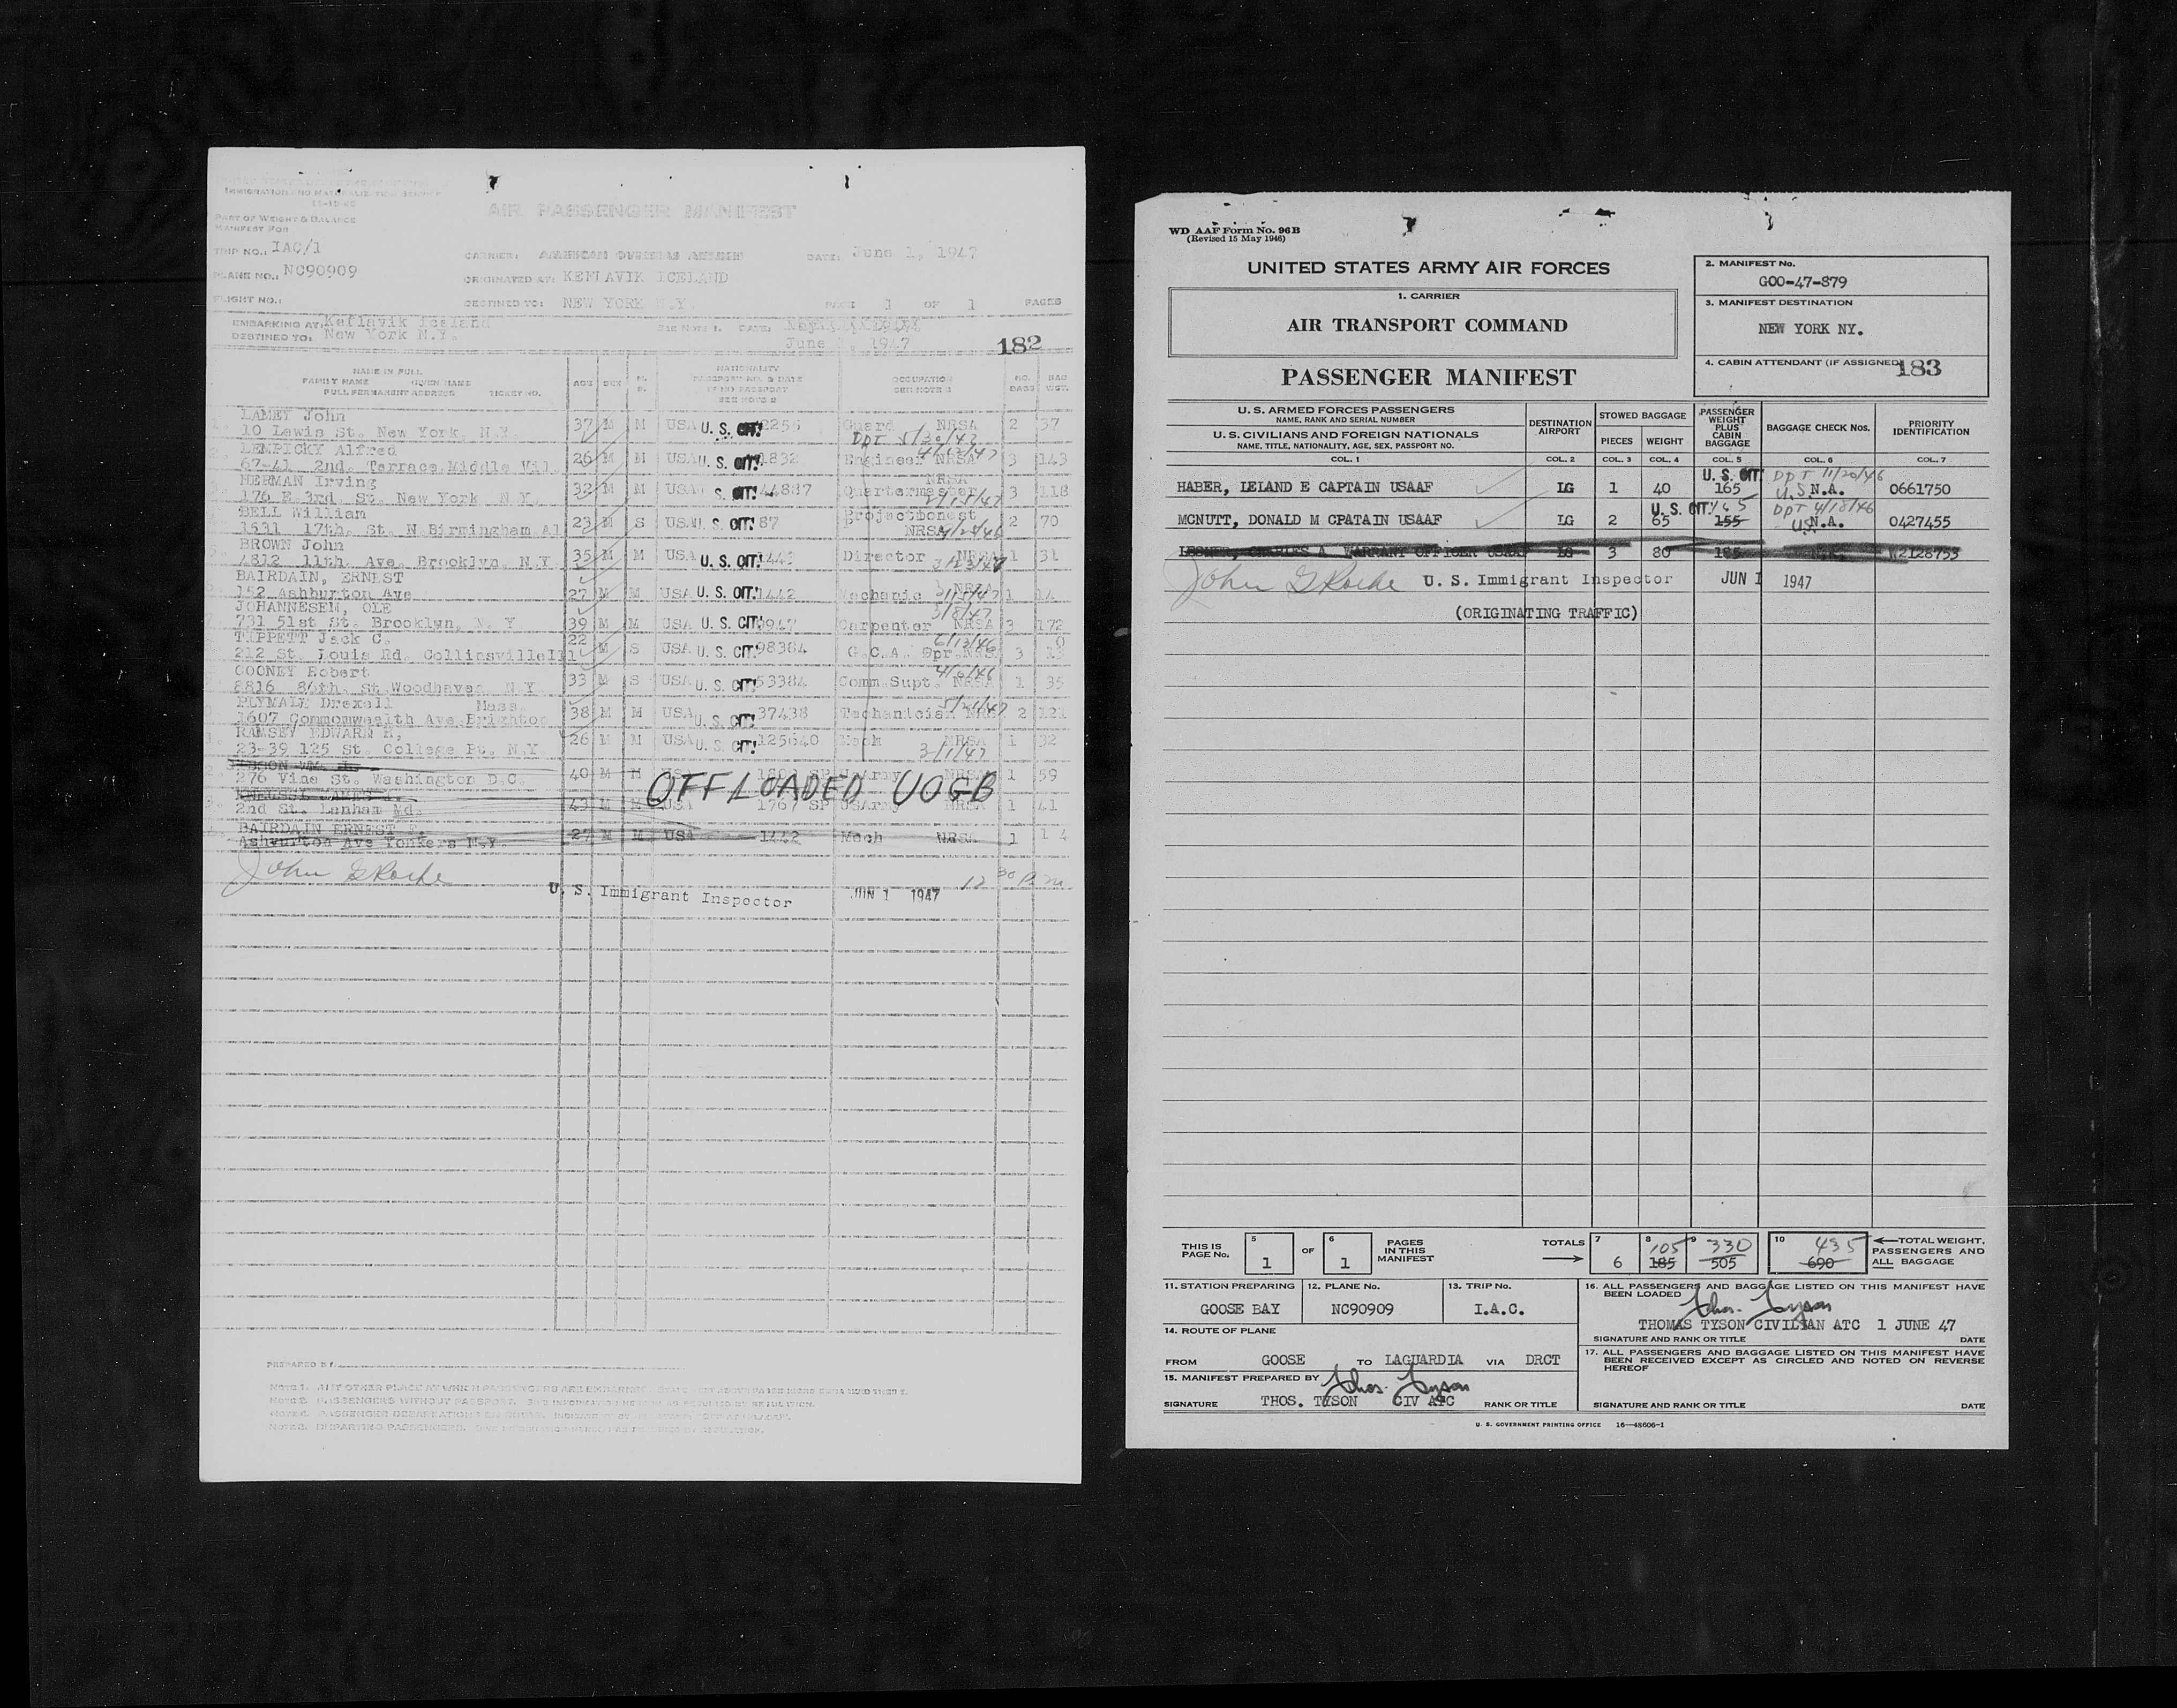 IMMIGRATION AND NATURALIZATION SERVICE
PART OF WEIGHT & BALANCE
MANIFEST FOR
AIR PASSENGER MANIFEST
TRIP NO.: IAC/1
CARRIER: AMERICAN OVERSEAS DATE: June 1, 1947
PLANE NO.: NC90909
ORIGINATED AT: KEFLAVIK ICELAND
FLIGHT NO.:
DESTINED TO: NEW YORK N.Y. PAGE 1 OF 1 PAGES
EMBARKING AT: Keflavik Iceland SEE NOTE 1. DATE:
DESTINED TO: New York N.Y. June 1, 1947 182
NAME IN FULL
FAMILY NAME GIVEN NAME
FULL PERMANENT ADDRESS TICKET NO.
AGE SEX M. S.
NATIONALITY
PASSPORT NO. & DATE
IF NO PASSPORT
SEE NOTE 2
OCCUPATION
NO. BAGS BAG WGT.
LAMEY John
10 Lewis St. New York, N.Y. 37 M M USA U. S. CIT. 2256 Guard NRSA 2 37
DPT 5/30/42
LEMPICKY Alfred
67-41 2nd. Terrace Middle Vil 26 M M USA U. S. CIT. 1832 Engineer NRSA 3 143
HERMAN Irving NRSA
176 E 3rd. St. New York N.Y. 32 M M USA U. S. CIT. 44887 Quartermaster 3 118
BELL William
1531 17th. St. N Birmingham Al 23 M S USA U. S. CIT. 87 NRSA 2 70
BROWN John
4812 11th. Ave. Brooklyn, N.Y 35 M M USA U. S. CIT. 1443 Director NRSA 1 31
BAIRDAIN, ERNEST NRSA
152 Ashburton Ave 27 M M USA U. S. CIT. 1442 Mechanic 1 14
JOHANNESEN, OLE 5/8/47
731 51st St. Brooklyn, N. Y 39 M M USA U. S. CIT. 0947 Carpenter NRSA 3 172
TIPPETT Jack C. 22
212 St. Louis Rd. Collinsville Ill M S USA U. S. CIT. 98384 G.C.A. Opr. NRSA 3
COONEY Robert
8816 86th. St Woodhaven N.Y. 33 M S USA U. S. CIT. 53384 Comm.Supt. NRSA 1 35
PLYMALE Drexell Mass.
1607 Commomwealth Ave Brighton 38 M M USA U. S. CIT. 37438 Technician NRS 2 121
RAMSEY EDWARD R,
23-39 125 St. College Pt. N.Y 26 M M USA U. S. CIT. 125640 Mech NRSA 1 32
3/1/47
276 Vine St. Washington D.C. 40 M M NRSA 1 59
OFFLOADED UOGB
2nd St. Lanham Md. 43 M M USA 1767 SP USArmy NRSA 1 41
BAIRDAIN ERNEST F.
Ashburton Ave Yonkers N.Y. 27 M M USA 1442 Mech NRSA 1 1 4
John G Roche
U. S. Immigrant Inspector JUN 1 1947 12 30 P.m.
PREPARED BY
WD AAF Form No. 96B
(Revised 15 May 1946)
UNITED STATES ARMY AIR FORCES
1. CARRIER
AIR TRANSPORT COMMAND
PASSENGER MANIFEST
2. MANIFEST No.
GOO-47-879
3. MANIFEST DESTINATION
NEW YORK NY.
4. CABIN ATTENDANT (IF ASSIGNED)
183
U. S. ARMED FORCES PASSENGERS
NAME, RANK AND SERIAL NUMBER
U. S. CIVILIANS AND FOREIGN NATIONALS
NAME, TITLE, NATIONALITY, AGE, SEX, PASSPORT NO.
DESTINATION AIRPORT
STOWED BAGGAGE
PIECES WEIGHT
PASSENGER WEIGHT PLUS CABIN BAGGAGE
BAGGAGE CHECK Nos.
PRIORITY IDENTIFICATION
COL. 1 COL. 2 COL. 3 COL. 4 COL. 5 COL. 6 COL. 7
U. S. CIT. DPT 11/20/46
HABER, LELAND E CAPTAIN USAAF LG 1 40 165 U.S. N.A. 0661750
U. S. CIT. 165 DPT 4/18/46
MCNUTT, DONALD M CPATAIN USAAF LG 2 65 155 U.S. N.A. 0427455
LESNER, CHARLES A WARRANT OFFICER USAAF LG 3 80 185 W2128753
John G Roche U. S. Immigrant Inspector JUN 1 1947
(ORIGINATING TRAFFIC)
THIS IS PAGE No. 5 1 OF 6 1 PAGES IN THIS MANIFEST
TOTALS 7 6 8 105 185 9 330 505 10 435 690 TOTAL WEIGHT, PASSENGERS AND ALL BAGGAGE
11. STATION PREPARING
GOOSE BAY
12. PLANE No.
NC90909
13. TRIP No.
I.A.C.
14. ROUTE OF PLANE
FROM GOOSE TO LAGUARDIA VIA DRCT
15. MANIFEST PREPARED BY
Thos. Tyson
SIGNATURE THOS. TYSON CIV ATC RANK OR TITLE
16. ALL PASSENGERS AND BAGGAGE LISTED ON THIS MANIFEST HAVE BEEN LOADED
Thos. Tyson
THOMAS TYSON CIVILIAN ATC 1 JUNE 47
SIGNATURE AND RANK OR TITLE DATE
17. ALL PASSENGERS AND BAGGAGE LISTED ON THIS MANIFEST HAVE BEEN RECEIVED EXCEPT AS CIRCLED AND NOTED ON REVERSE HEREOF
SIGNATURE AND RANK OR TITLE DATE
U. S. GOVERNMENT PRINTING OFFICE 16—48606-1